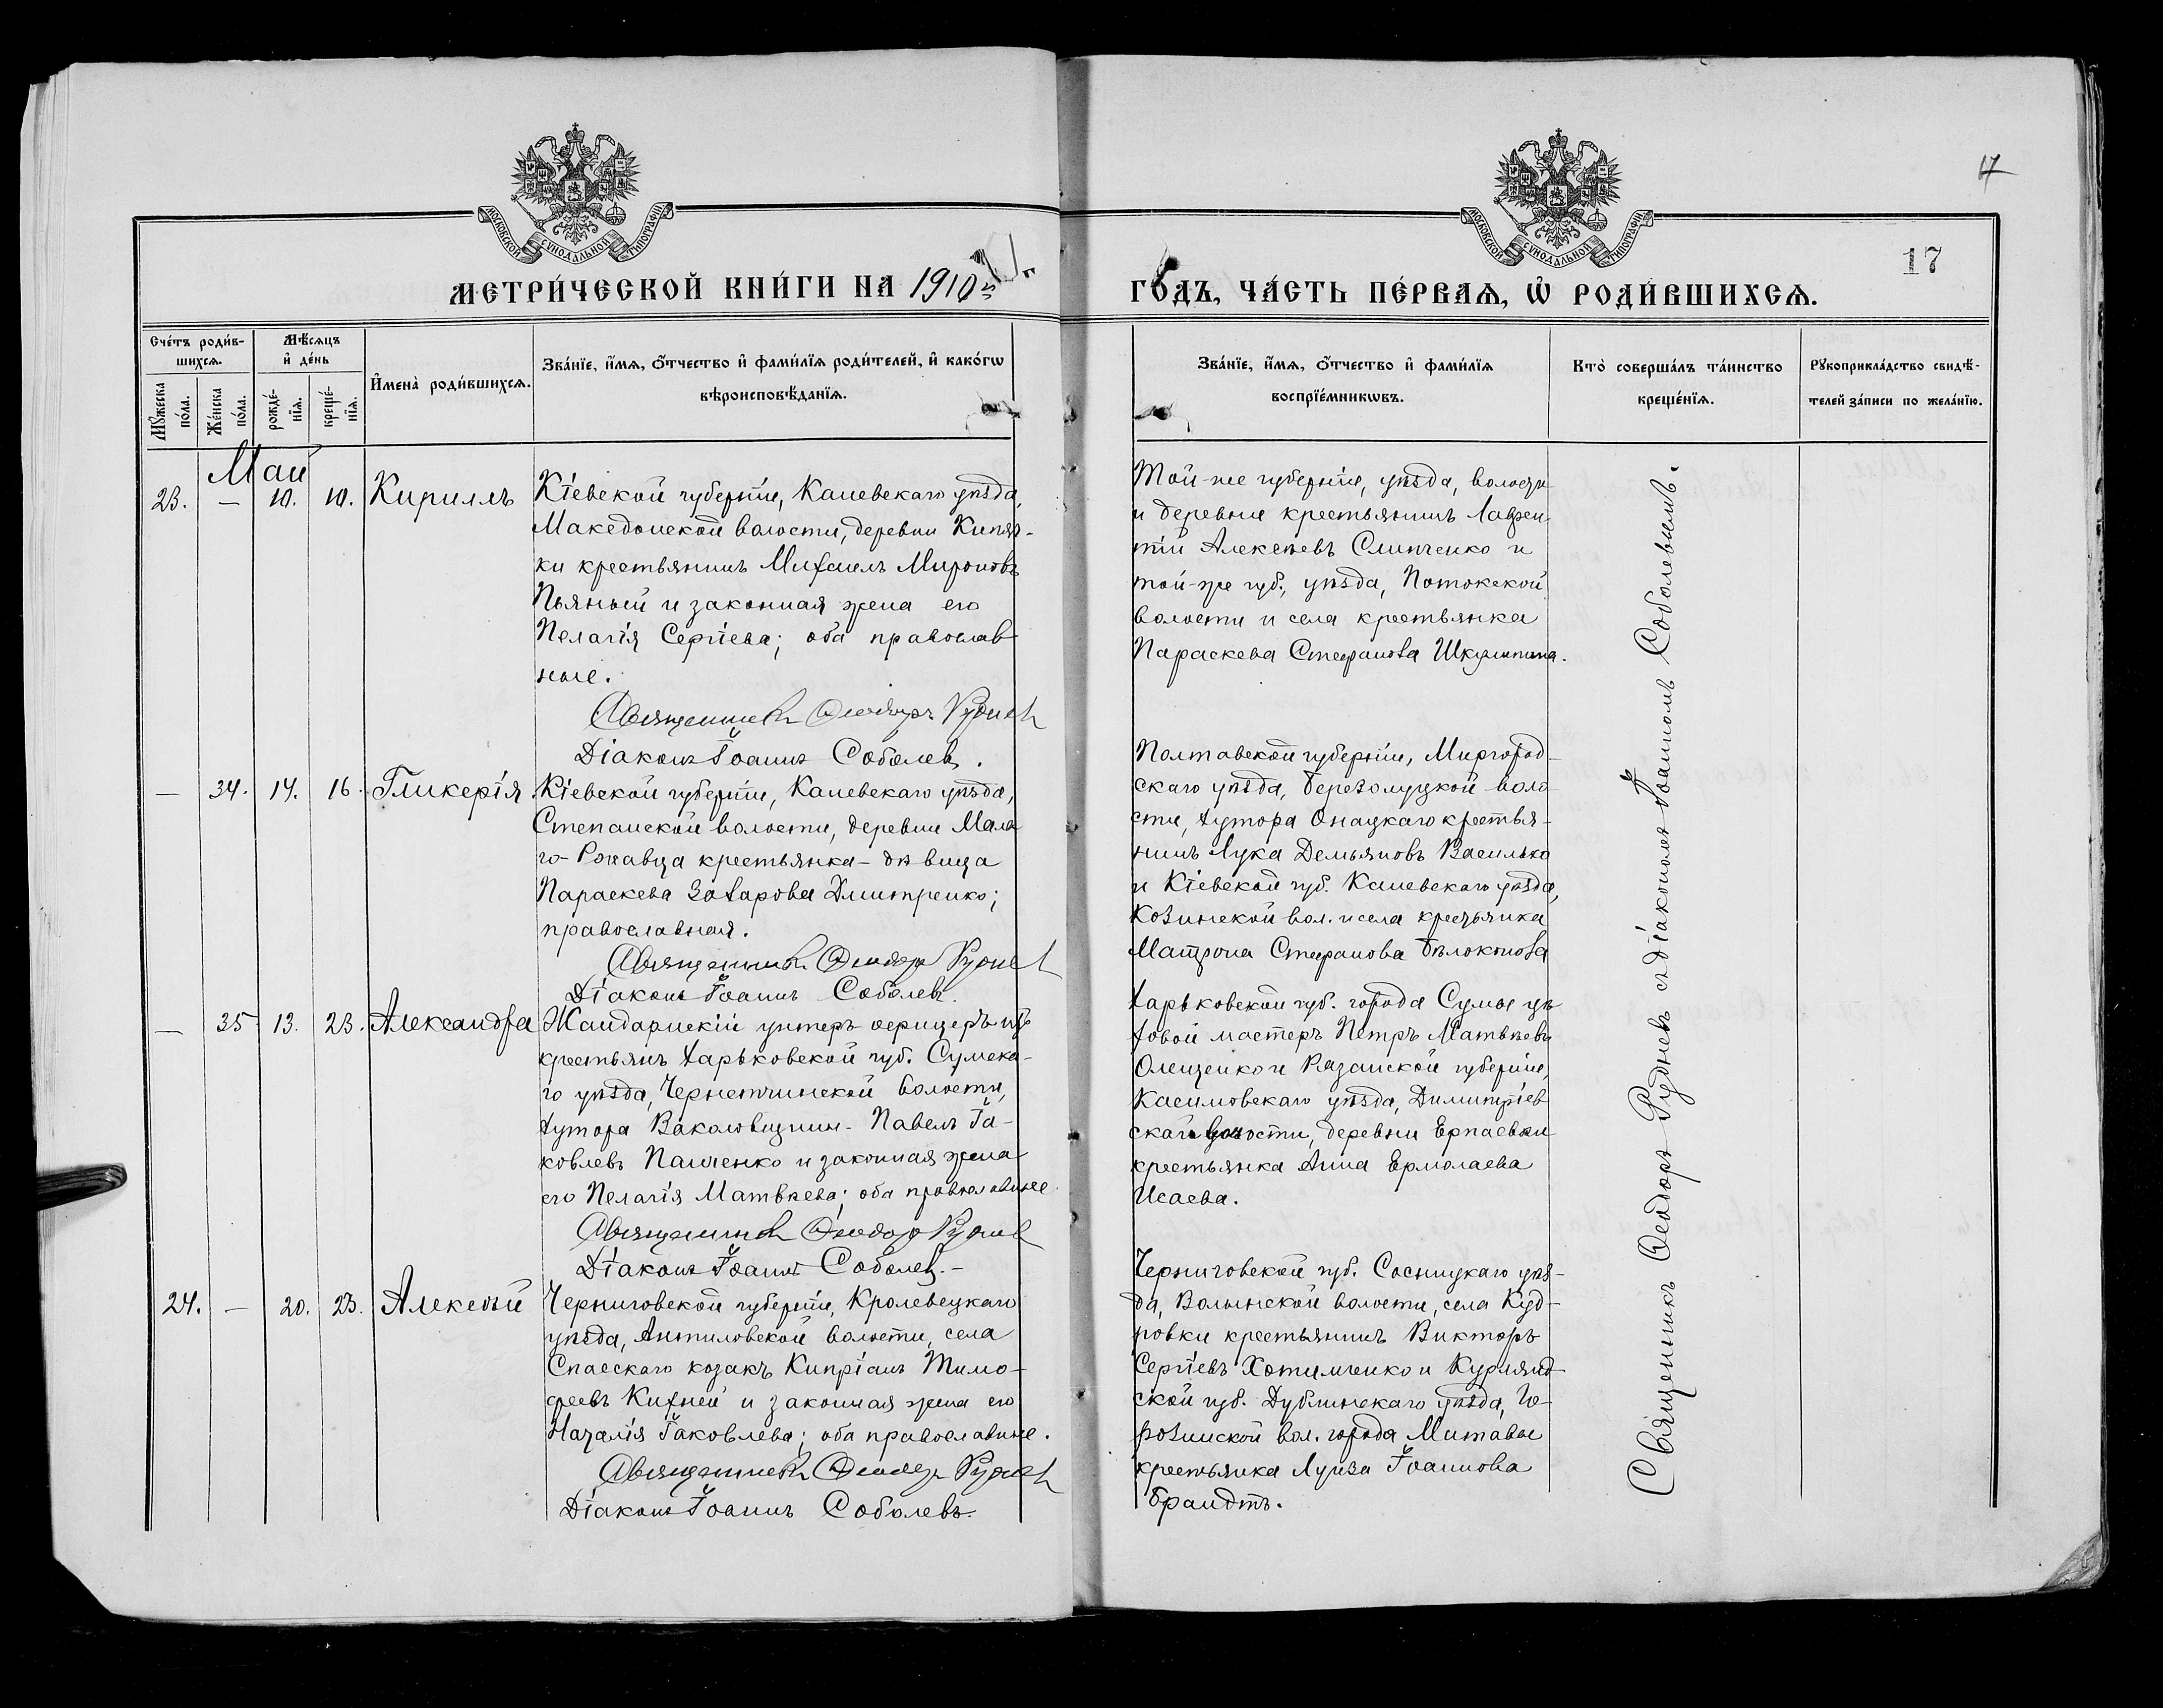 17
МОСКОВСКОЙ СУНОДАЛЬНОЙ ТИПОГРАФІИ
МОСКОВСКОЙ СУНОДАЛЬНОЙ ТИПОГРАФІИ
17
МЕТРИ́ЧЕСКОЙ КНИ́ГИ НА 1910й
ГО́ДЪ, ЧА́СТЬ ПЕ́РВАѦ, Ѡ҆ РОДИ́ВШИХСѦ.
Сче́тъ роди́в-
шихсѧ.
Мꙋ́жеска по́ла.
Же́нска по́ла.
Мѣ́сяцъ
и҆ де́нь
рожде́-
нїѧ.
креще́-
нїѧ.
И҆мена̀ роди́вшихсѧ.
Зва́нїе, и҆́мѧ, ѻ҆́тчество и҆ фами́лїѧ роди́телей, и҆ како́гѡ
вѣроисповѣ́данїѧ.
Зва́нїе, и҆́мѧ, ѻ҆́тчество и҆ фами́лїѧ
воспрїе́мникѡвъ.
Кто̀ соверша́лъ та́инство
креще́нїѧ.
Рꙋкоприкла́дство свидѣ́-
телей за́писи по жела́нїю.
Май
23. — 10. 10. Кириллъ
Кіевской губерніи, Каневскаго уѣзда,
Македонской волости, деревни Кипяч-
ки крестьянинъ Михаилъ Мироновъ
Пьяный и законная жена его
Пелагія Сергіева; оба православ
ные.
Священникъ Ѳеодоръ Рудневъ
Діаконъ Іоаннъ Соболевъ.
Той-же губерніи, уѣзда, волости
и деревни крестьянинъ Лаврен-
тій Алексѣевъ Слипченко и
той-же губ., уѣзда, Потокской
волости и села крестьянка
Параскева Стефанова
— 34. 14. 16. Гликерія
Кіевской губерніи, Каневскаго уѣзда,
Степанской волости, деревни Мала
го-Ржавца крестьянка-дѣвица
Параскева Захарова Дмитренко;
православная.
Священникъ Ѳеодоръ Рудневъ
Діаконъ Іоаннъ Соболевъ.
Полтавской губерніи, Миргород-
скаго уѣзда, Березолуцкой воло
сти, хутора Онацкаго крестья-
нинъ Лука Демьяновъ Василько
и Кіевской губ. Каневскаго уѣзда,
Козинской вол. и села крестьянка
Матрона Стефанова Бѣлоконова
— 35 13. 23. Александра
Жандармскій унтеръ-офицеръ изъ
крестьянъ Харьковской губ. Сумска-
го уѣзда, Чернетчинской волости,
хутора Ваколовщины Павелъ Іа-
ковлевъ Панченко и законная жена
его Пелагія Матвѣева; оба православные
Священникъ Ѳеодоръ Рудневъ
Діаконъ Іоаннъ Соболевъ.-
Харьковской губ. города Сумы цѣ
ховой мастеръ Петръ Матвѣевъ
Олещенко и Рязанской губерніи,
Касимовскаго уѣзда, Димитріев
ской волости, деревни
крестьянка Анна Ермолаева
Исаева.
24. — 20. 23. Алексѣй
Черниговской губерніи, Кролевецкаго
уѣзда, Алтиновской волости, села
Спасскаго козакъ Кипріанъ Тимо-
феевъ Кихней и законная жена его
Наталія Іаковлева; оба православные.
Священникъ Ѳеодоръ Рудневъ
Діаконъ Іоаннъ Соболевъ.
Черниговской губ. Сосницкаго уѣз-
да, Волынской волости, села Куд-
ровки крестьянинъ Викторъ
Сергіевъ Хотимченко и Курлянд-
ской губ. Дублинскаго уѣзда,
вол. города Митавы
крестьянка Луиза Іоаннова
Брандтъ.
Священникъ Ѳеодоръ Рудневъ съ діакономъ Іоанномъ Соболевымъ.